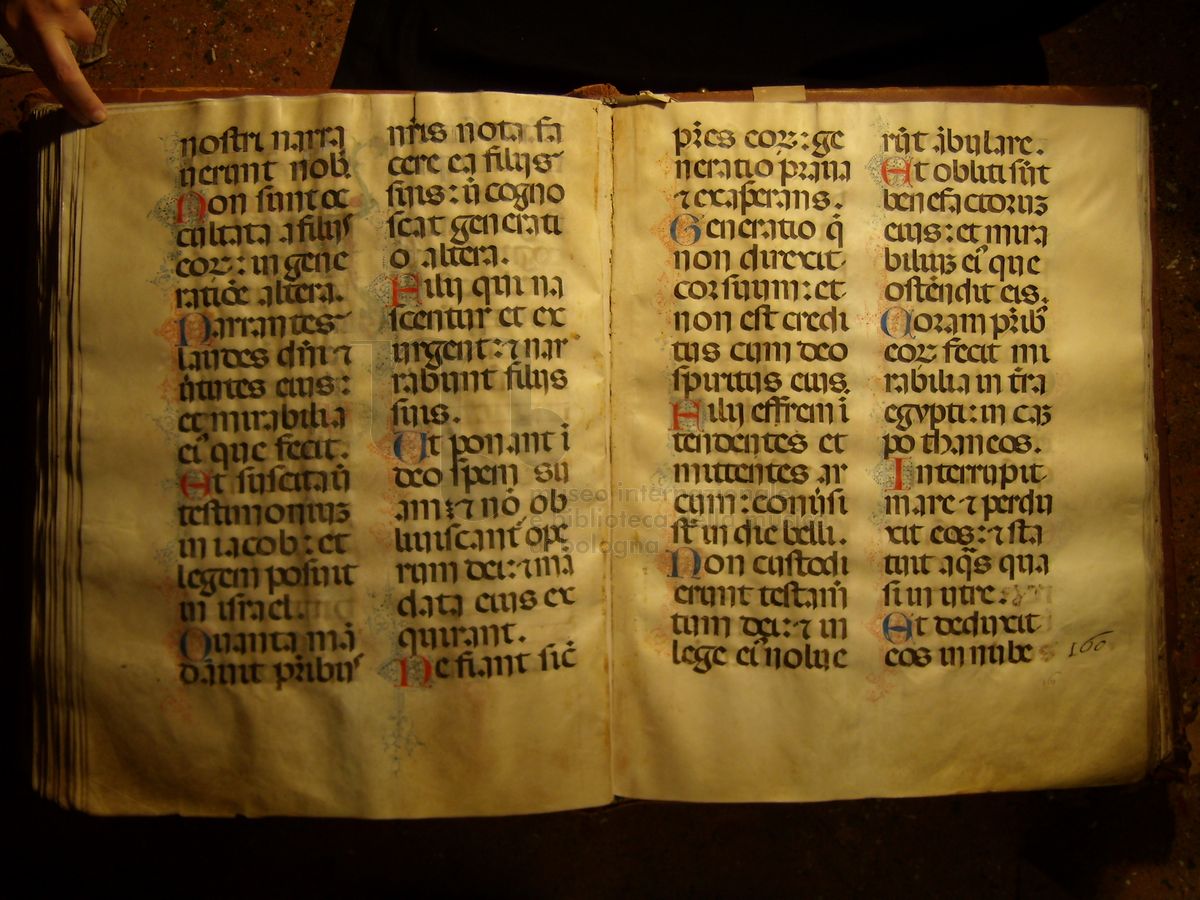 nostri narra
nerunt nob̄.
Non sunt oc
cultata a filijs
eoꝝ: in gene
ratiōe altera.
Narrantes
laudes dñi ⁊
ũtutes eius:
et mirabilia
eiꝰ que fecit.
Et suscitaũ
testimoniuꝫ
in iacob: et
legem posuit
in israel.
Quanta mā
dauit pr̄ibus
nr̄is nota fa
cere ea filijs
suis: ũ cogno
scat generati
o altera.
Filij qui na
scentur et ex
urgent: ⁊ nar
rabunt filijs
suis.
Ut ponant ī
deo spem su
am: ⁊ nō ob
liuiscant̄ ope
rum dei: ⁊ mā
data eius ex
quirant.
Ne fiant sic̄
pr̄es eoꝝ: ge
neratio praua
⁊ exasperans.
Generatio q̄
non direxit
cor suum: et
non est credi
tus cum deo
spiritus eius.
Filij effrem ī
tendentes et
mittentes ar
cum: conũsi
st̄ in die belli.
Non custodi
erunt testam̄
tum dei: ⁊ in
lege eiꝰ nolue
rũt ābulare.
Et obliti sũt
benefactoruꝫ
eius: et mira
biliuꝫ eiꝰ que
ostēdit eis.
Coram pr̄ib̄
eoꝝ fecit mi
rabilia in t̄ra
egypti: in cā

po thaneos.
Interrupit
mare ⁊ perdu
xit eos: ⁊ sta
tuit aq̄s qua
si in utre:
Et deduxit
eos in nube
166
museo inter
e biblioteca
bologna